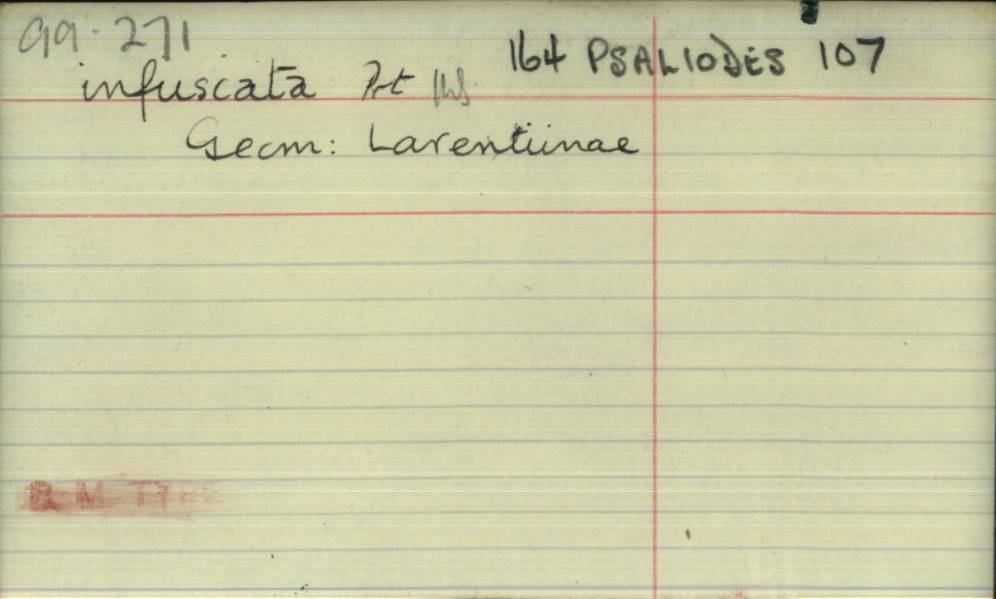 99.271
164 PSALIODES 107
infuscata Prt MS.
Geom: Larentiinae
B.M. TYPE